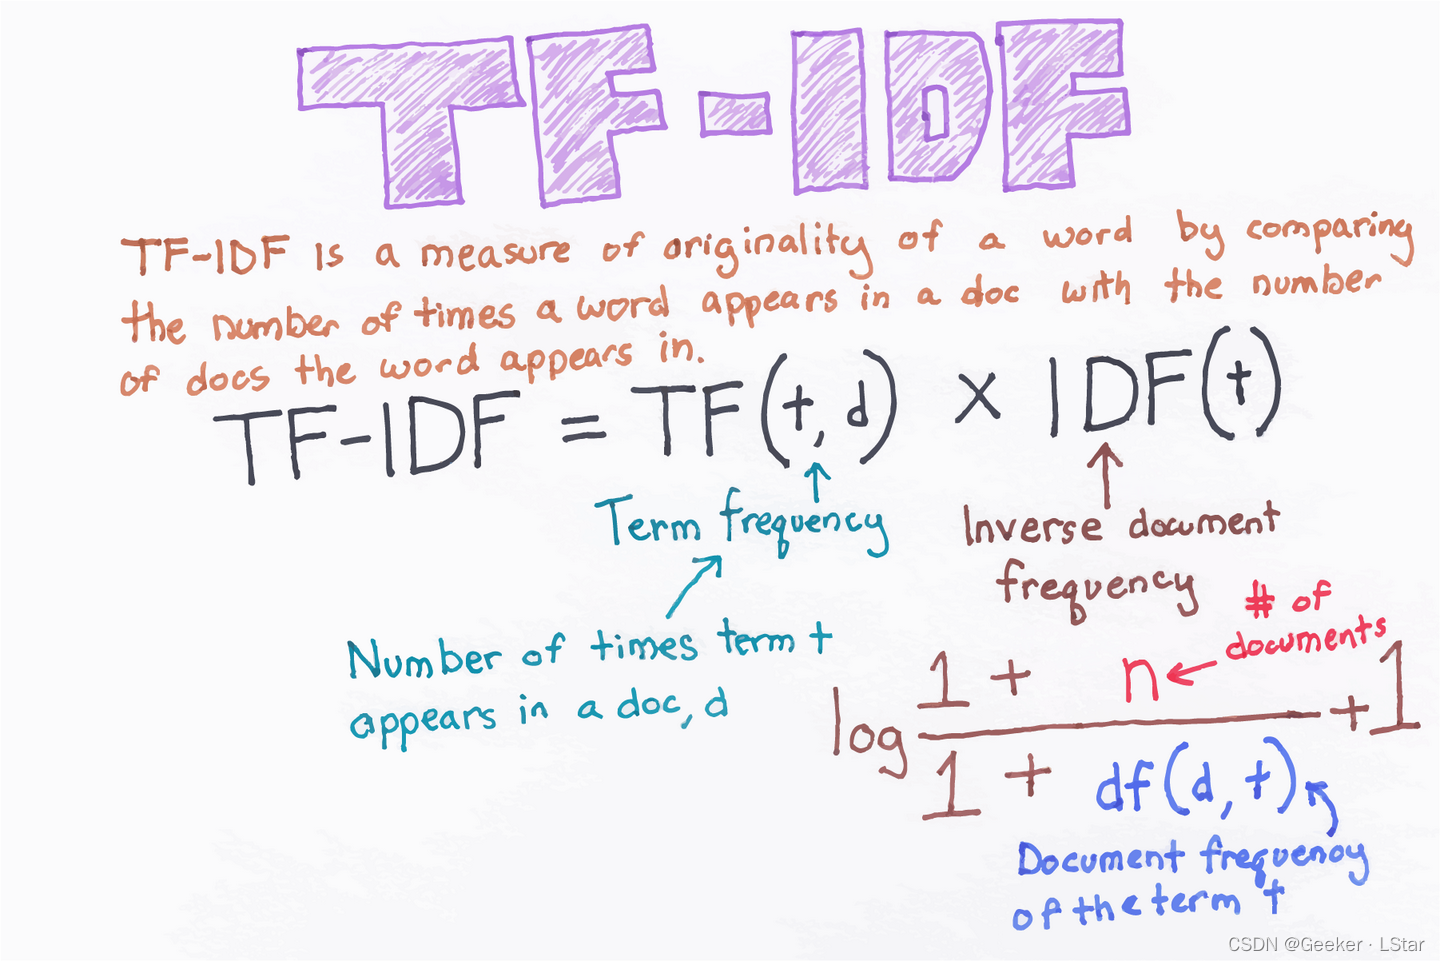 TF-IDF
TF-IDF is a measure of originality of a word by comparing
the number of times a word appears in a doc with the number
of docs the word appears in.
TF-IDF = TF(t, d) × IDF(t)
Term frequency
Inverse document
frequency
Number of times term t
appears in a doc, d
# of
documents
log 1 + n
1 + df(d, t)
+1
Document frequency
of the term t
CSDN @Geeker · LStar